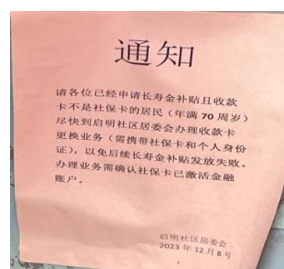 通知
请各位已经申请长寿金补贴且收款
卡不是社保卡的居民（年满 70 周岁）
尽快到启明社区居委会办理收款卡
更换业务（需携带社保卡和个人身份
证），以免后续长寿金补贴发放失败。
办理业务需确认社保卡已激活金融
账户。
启明社区居委会
2023 年 12 月 8 号